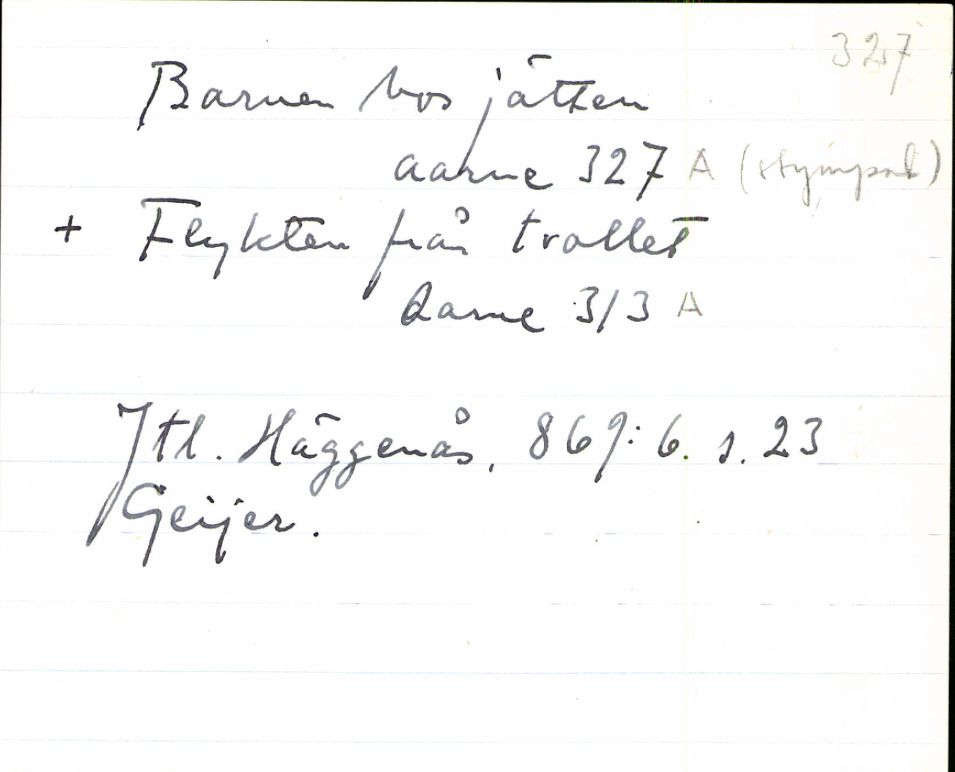 327
Barnen hos jätten
Aarne 327 A (stympad)
+ Flykten från trollet
Aarne 313 A
Jtl. Häggenås, 869:6. s. 23
Geijer.